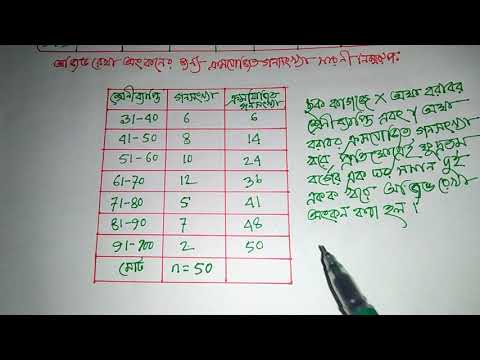 অজিভ রেখা অংকনের জন্য ক্রমযোজিত গনসংখ্যা সারনী নিম্নরূপ:
শ্রেনীব্যাপ্তি গনসংখ্যা ক্রমযোজিত গনসংখ্যা
31-40 6 6
41-50 8 14
51-60 10 24
61-70 12 36
71-80 5 41
81-90 7 48
91-100 2 50
মোট n=50
ছক কাগজে X অক্ষ বরাবর
শ্রেনীব্যাপ্তি এবং Y অক্ষ
বরাবর ক্রমযোজিত গনসংখ্যা
ধরে প্রতিক্ষেত্রে ক্ষুদ্রতম
বর্গের এক ঘর সমান দুই
একক ধরে অজিভ রেখা
অংকন করা হল।